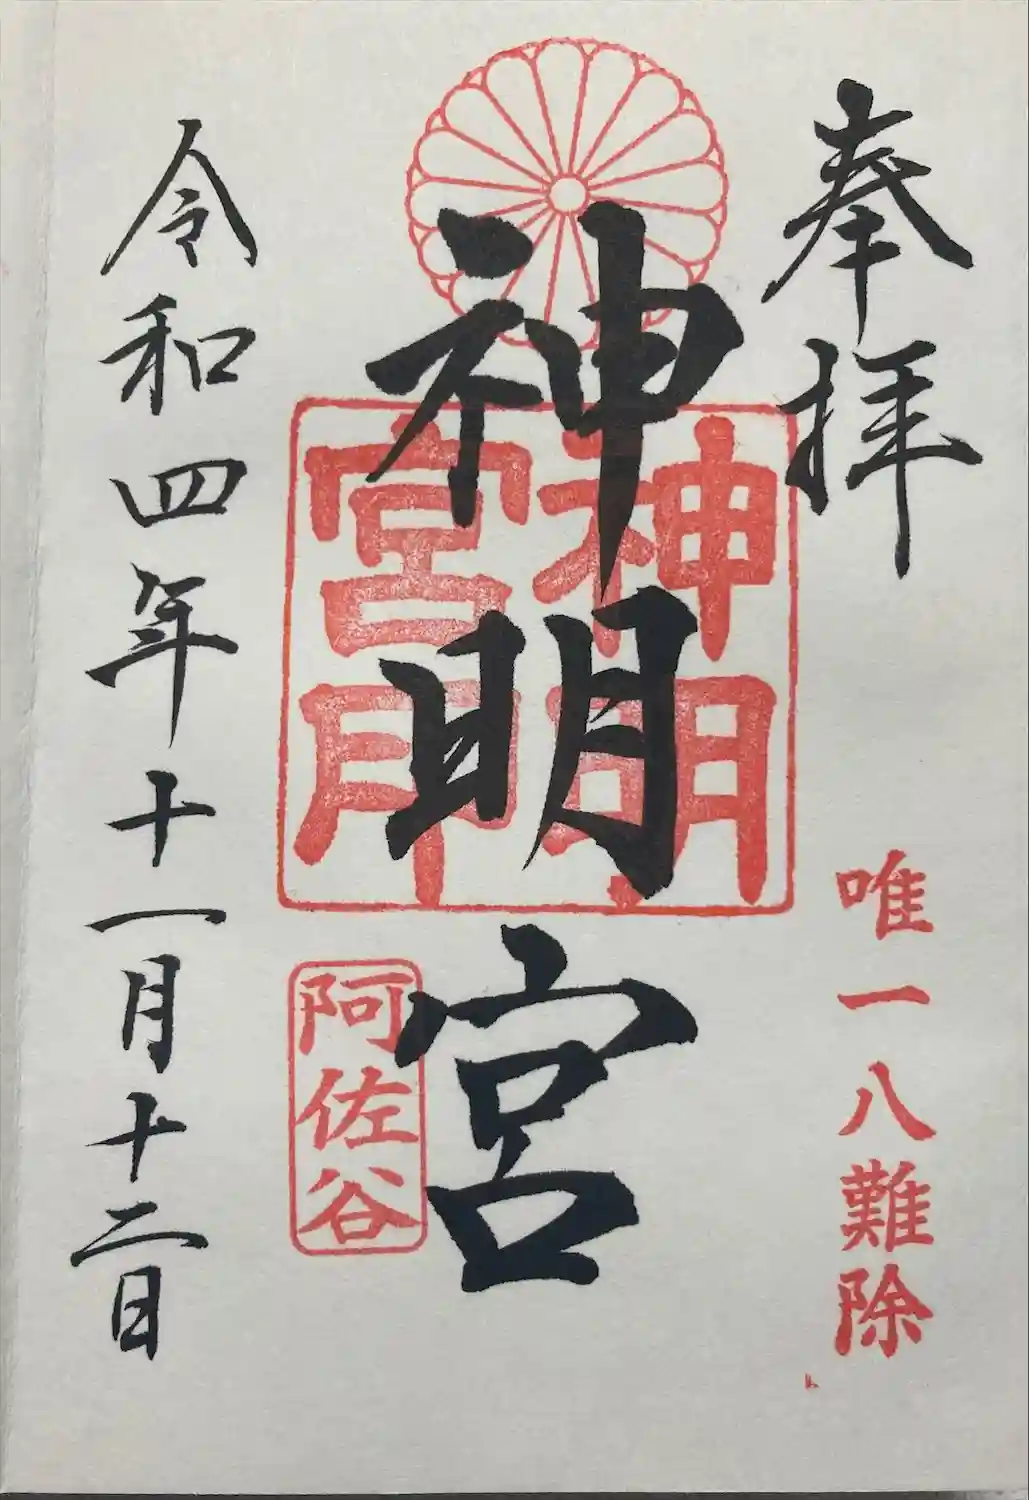 奉拝
唯一八難除
神明宮
神明
宮印
阿佐谷
令和四年十一月十二日